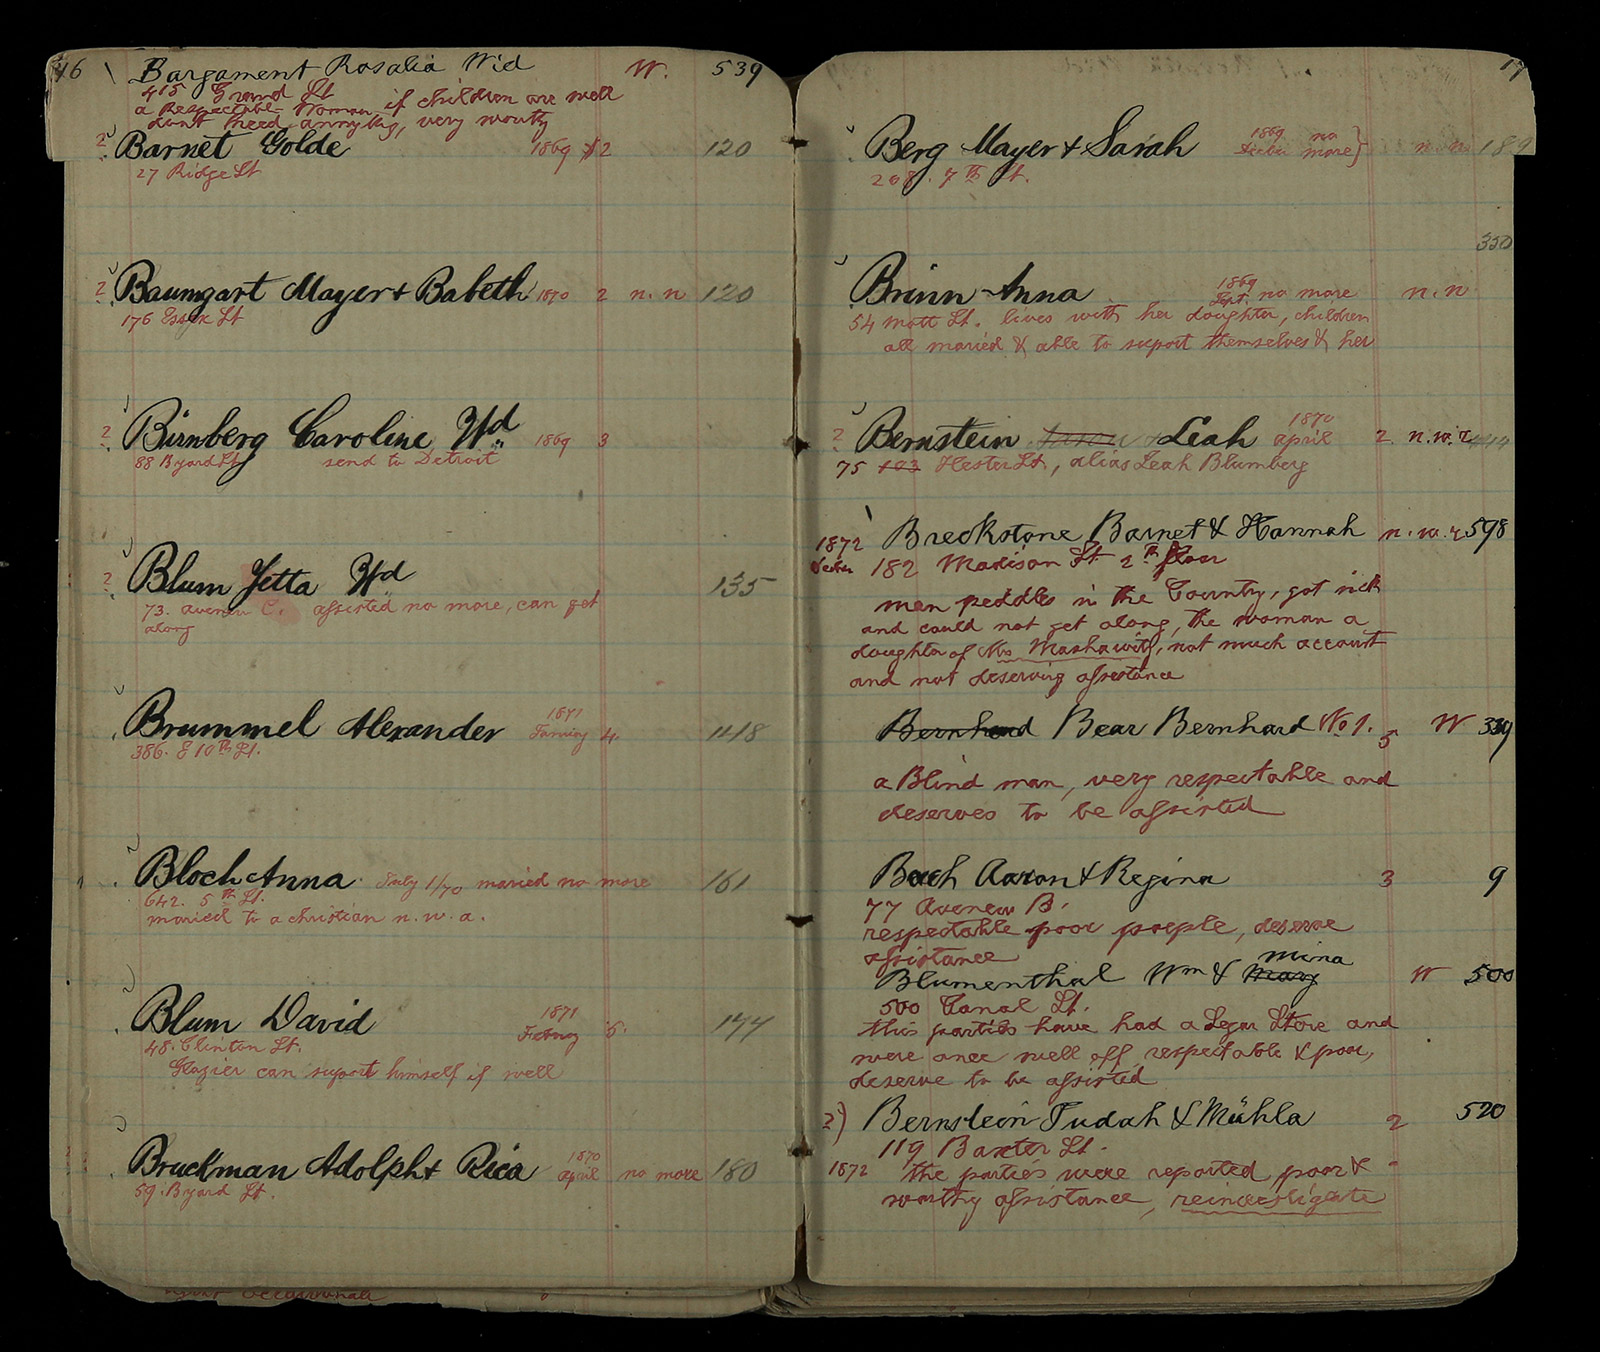 46 Bargament Rosalia Wid W. 539
415 Grand St
a Respectable Woman if children are well
don't need annything, very worthy
2 Barnet Golde 1869 $2 120
27 Ridge St
2 Baumgart Mayer & Babeth 1870 2 n. n 120
176 Essex St
2 Birnberg Caroline Wd 1869 3
88 Byard St send to Detroit
2 Blum Yetta Wd 135
73. avenue C. assisted no more, can get
along
Brummel Alexander 1871 4 1118
386. E 10th St.
Bloch Anna July 1/70 maried no more 161
642. 5th St.
maried to a christian n. w. a.
Blum David 1871 5. 177
48. Clinton St.
Glazier can suport himself if well
Bruckman Adolph & Rica 1870 april no more 180
59. Byard St.
17
Berg Mayer & Sarah 1869 no more } n. n 189
208. 7th St.
330
Brinn Anna 1869 Sept. no more n. n
54 Mott St. lives with her doughter, children
all maried & able to suport themselves & her
2 Bernstein Leah 1870 april 2. n. w. r 444
75 103 Hester St, alias Leah Blumberg
1872 Breckstone Barnet & Hannah n. w. r 598
182 Madison St 2th floor
man peddles in the Country, got sick
and could not get along, the woman a
doughter of Mrs Mashawitz, not much account
and not deserving assistance
Bernhard Bear Bernhard No 1. 5 W 339
a Blind man, very respectable and
deserves to be assisted
Bach Aaron & Regina 3 9
77 Avenew B.
respectable poor poeple, deserve
assistance
Blumenthal Wm & Mary Mina W 500
500 Canal St.
this parties have had a Segar Store and
were once well off respectable & poor,
deserve to be assisted
2) Bernstein Judah & Mühla 2 520
119 Baxter St.
1872 the parties were reported poor &
worthy assistance, reinvestigate